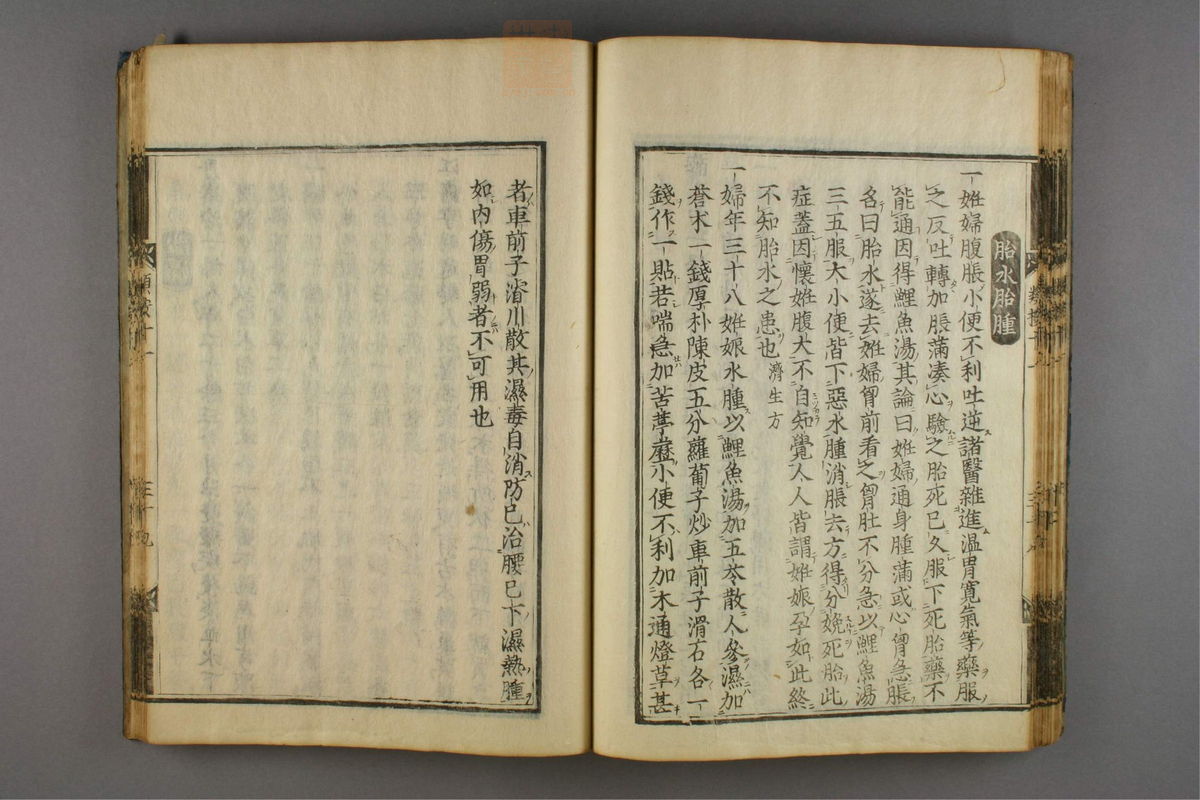 胎水胎腫
一妊婦腹脹小便不利吐逆諸醫雜進温胃寬氣等藥服
之反吐轉加脹滿湊心驗之胎死已久服下死胎藥不
能通因得鯉魚湯其論曰妊婦通身腫滿或心胷急脹
名曰胎水遂去妊婦胷前看之胷肚不分急以鯉魚湯
三五服大小便皆下惡水腫消脹去方得分娩死胎此
症蓋因懷妊腹大不自知覺人人皆謂妊娠孕如此終
不知胎水之患也 濟生方
一婦年三十八妊娠水腫以鯉魚湯加五苓散人參濕加
蒼朮一錢厚朴陳皮五分蘿蔔子炒車前子滑石各一
錢作一貼若喘急加苦葶藶小便不利加木通燈草甚
者車前子濬川散其濕毒自消防已治腰已下濕熱腫
如内傷胃弱者不可用也